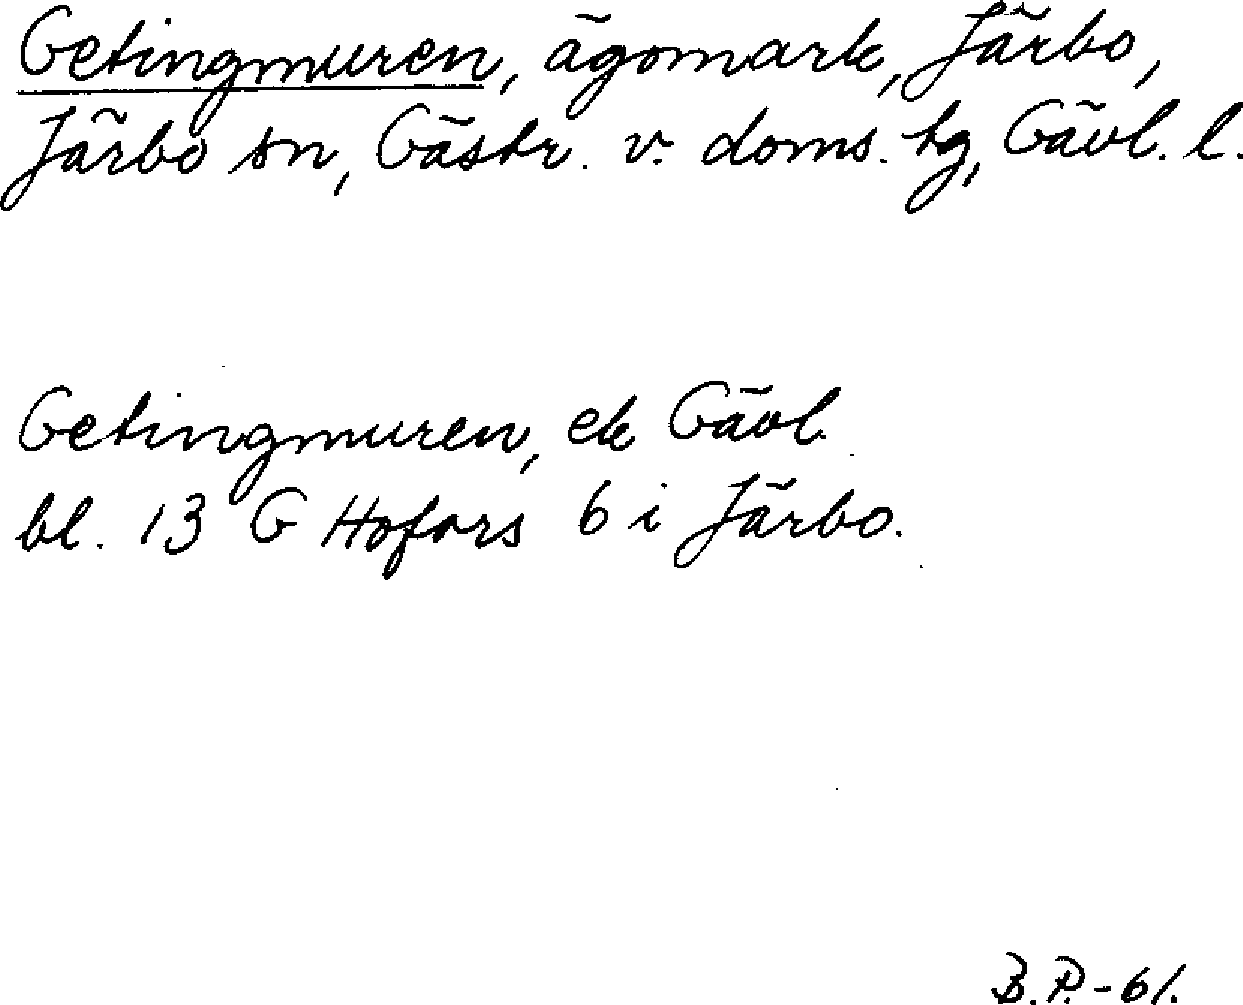 Getingmuren, ägomark, Järbo,
Järbo sn, Gästr. v. doms. tg, Gävl. l.
Getingmuren, ek Gävl.
bl. 13 G Hofors 6 i Järbo.
B.P.-61.